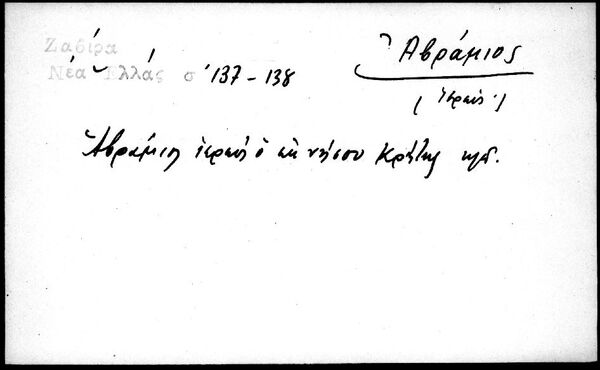 Ζαβίρα
Νέα Ἑλλάς σ 137 - 138
Ἀβράμιος
(ἱερεύς)
Ἀβράμιος ἱερεύς ὁ ἐκ νήσου Κρήτης κτλ.